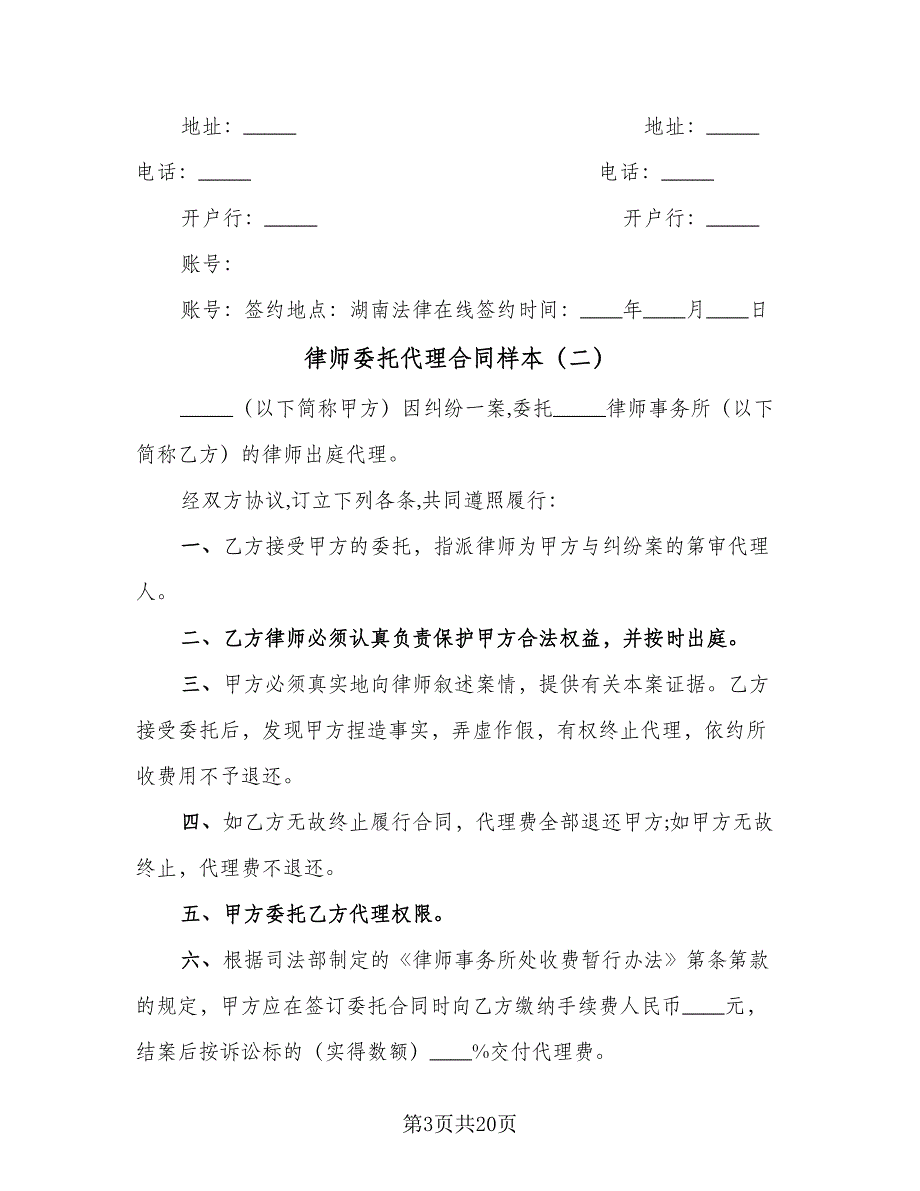 地址：_____ 地址：_____
电话：_____ 电话：_____
开户行：_____ 开户行：_____
账号：
账号：签约地点：湖南法律在线签约时间：____年____月____日
律师委托代理合同样本（二）
_____（以下简称甲方）因纠纷一案,委托_____律师事务所（以下
简称乙方）的律师出庭代理。
经双方协议,订立下列各条,共同遵照履行：
一、乙方接受甲方的委托，指派律师为甲方与纠纷案的第审代理
人。
二、乙方律师必须认真负责保护甲方合法权益，并按时出庭。
三、甲方必须真实地向律师叙述案情，提供有关本案证据。乙方
接受委托后，发现甲方捏造事实，弄虚作假，有权终止代理，依约所
收费用不予退还。
四、如乙方无故终止履行合同，代理费全部退还甲方;如甲方无故
终止，代理费不退还。
五、甲方委托乙方代理权限。
六、根据司法部制定的《律师事务所处收费暂行办法》第条第款
的规定，甲方应在签订委托合同时向乙方缴纳手续费人民币____元，
结案后按诉讼标的（实得数额）____%交付代理费。
第3页共20页